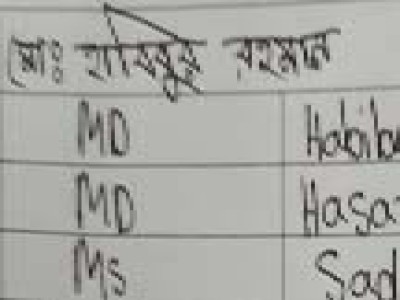 মোঃ রহমান
MD Habibu
MD Hasa
Ms Sad